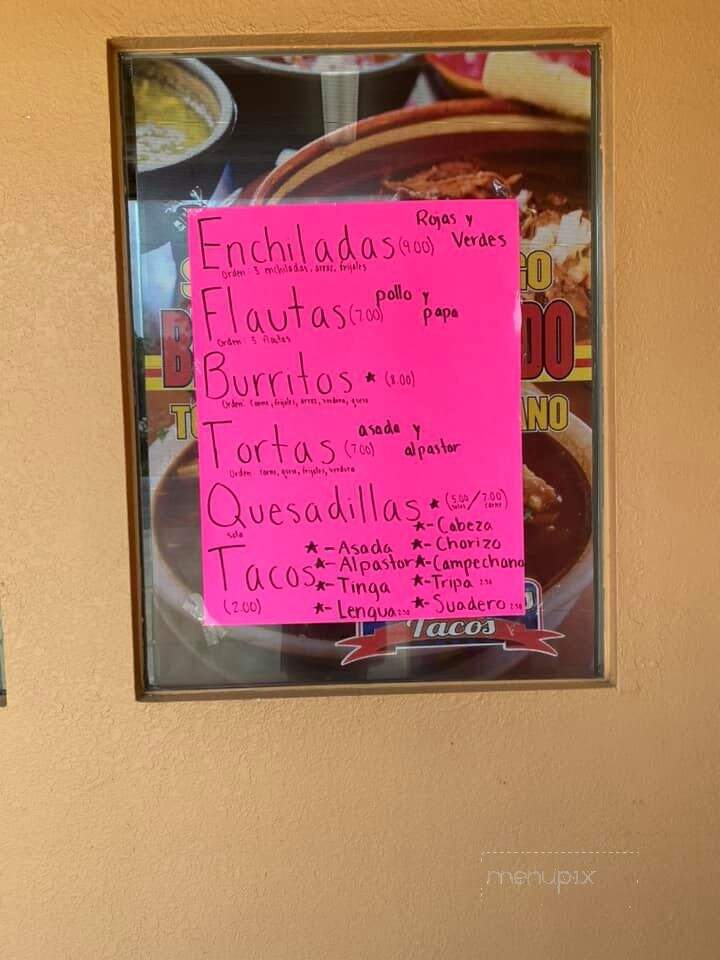 Enchiladas (9.00) Rojas y Verdes
Orden: 3 enchiladas, arroz, frijoles
Flautas (7.00) pollo y papa
Orden: 5 flautas
Burritos ★ (8.00)
Orden: Carne, frijoles, arroz, verdura, queso
Tortas (7.00) asada y alpastor
Orden: carne, queso, frijoles, verdura
Quesadillas ★ (5.00 / 7.00)
sola carne
Tacos
(2.00)
★- Asada
★- Alpastor
★- Tinga
★- Lengua 2.50
★- Cabeza
★- Chorizo
★- Campechano
★- Tripa 2.50
★- Suadero 2.50
GO
B DO
TO ANO
Tacos
menupix